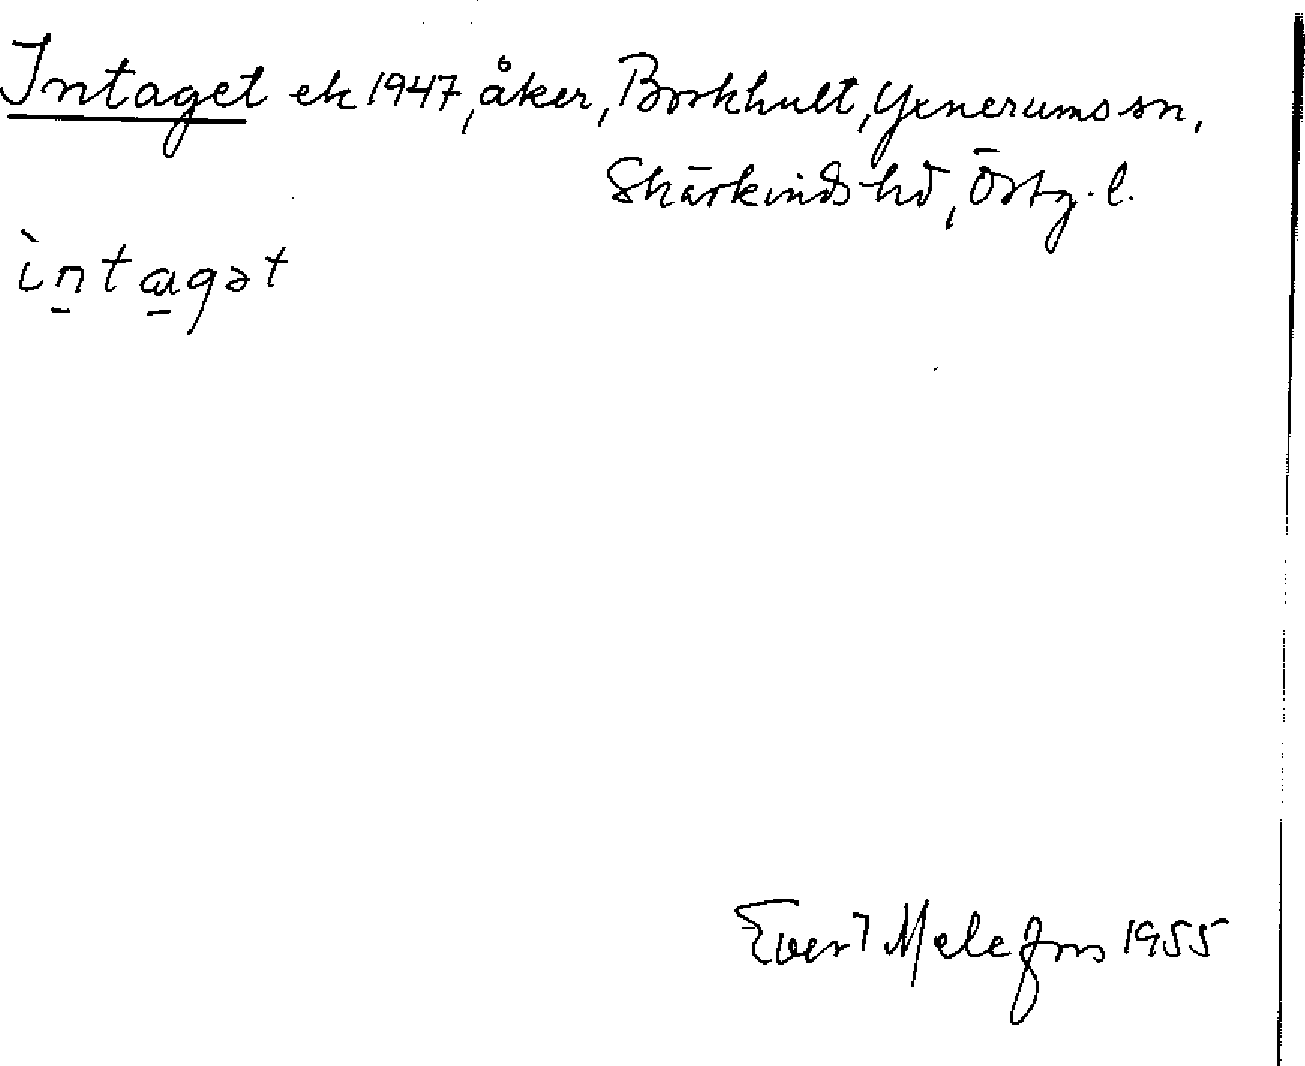 Intaget ek 1947, åker, Borkhult, Yxnerums sn,
Skärkinds hd, Östg. l.
ìntagət
Evert Melefors 1955